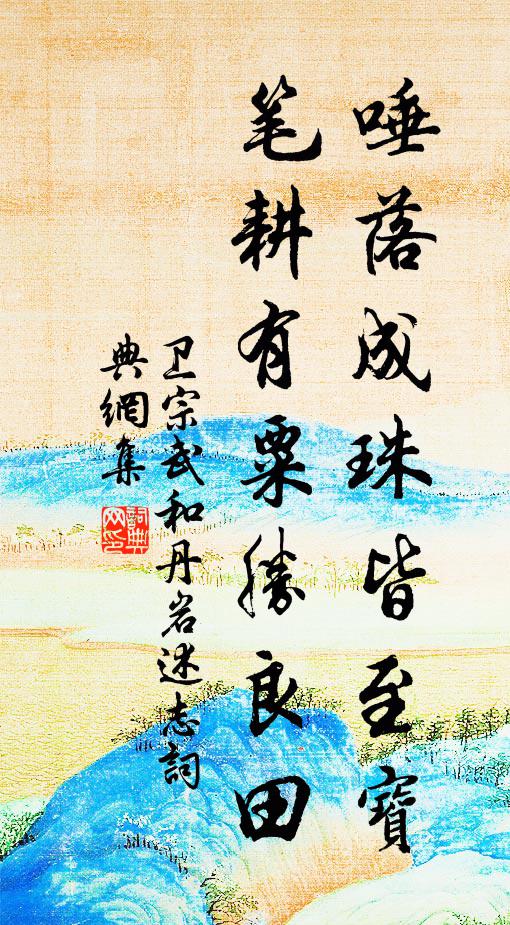 唾落成珠皆至寶
笔耕有粟勝良田
卫宗武和丹岩述志詞
典網集
詞典
网印